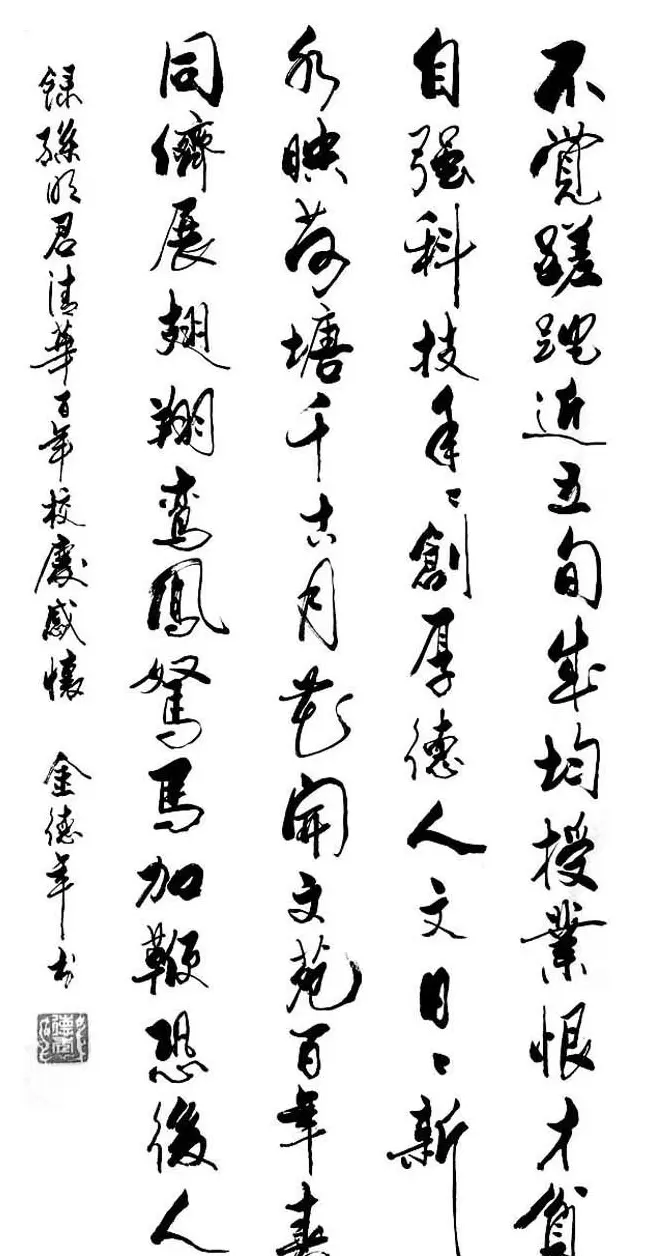 不覺蹉跎近五旬成均授業恨才貧
自强科技年〻創厚德人文日〻新
水映荷塘千古月花開文苑百年春
同儕展翅翔鸞鳳駑馬加鞭恐後人
錄孫明君清華百年校慶感懷 金德年書